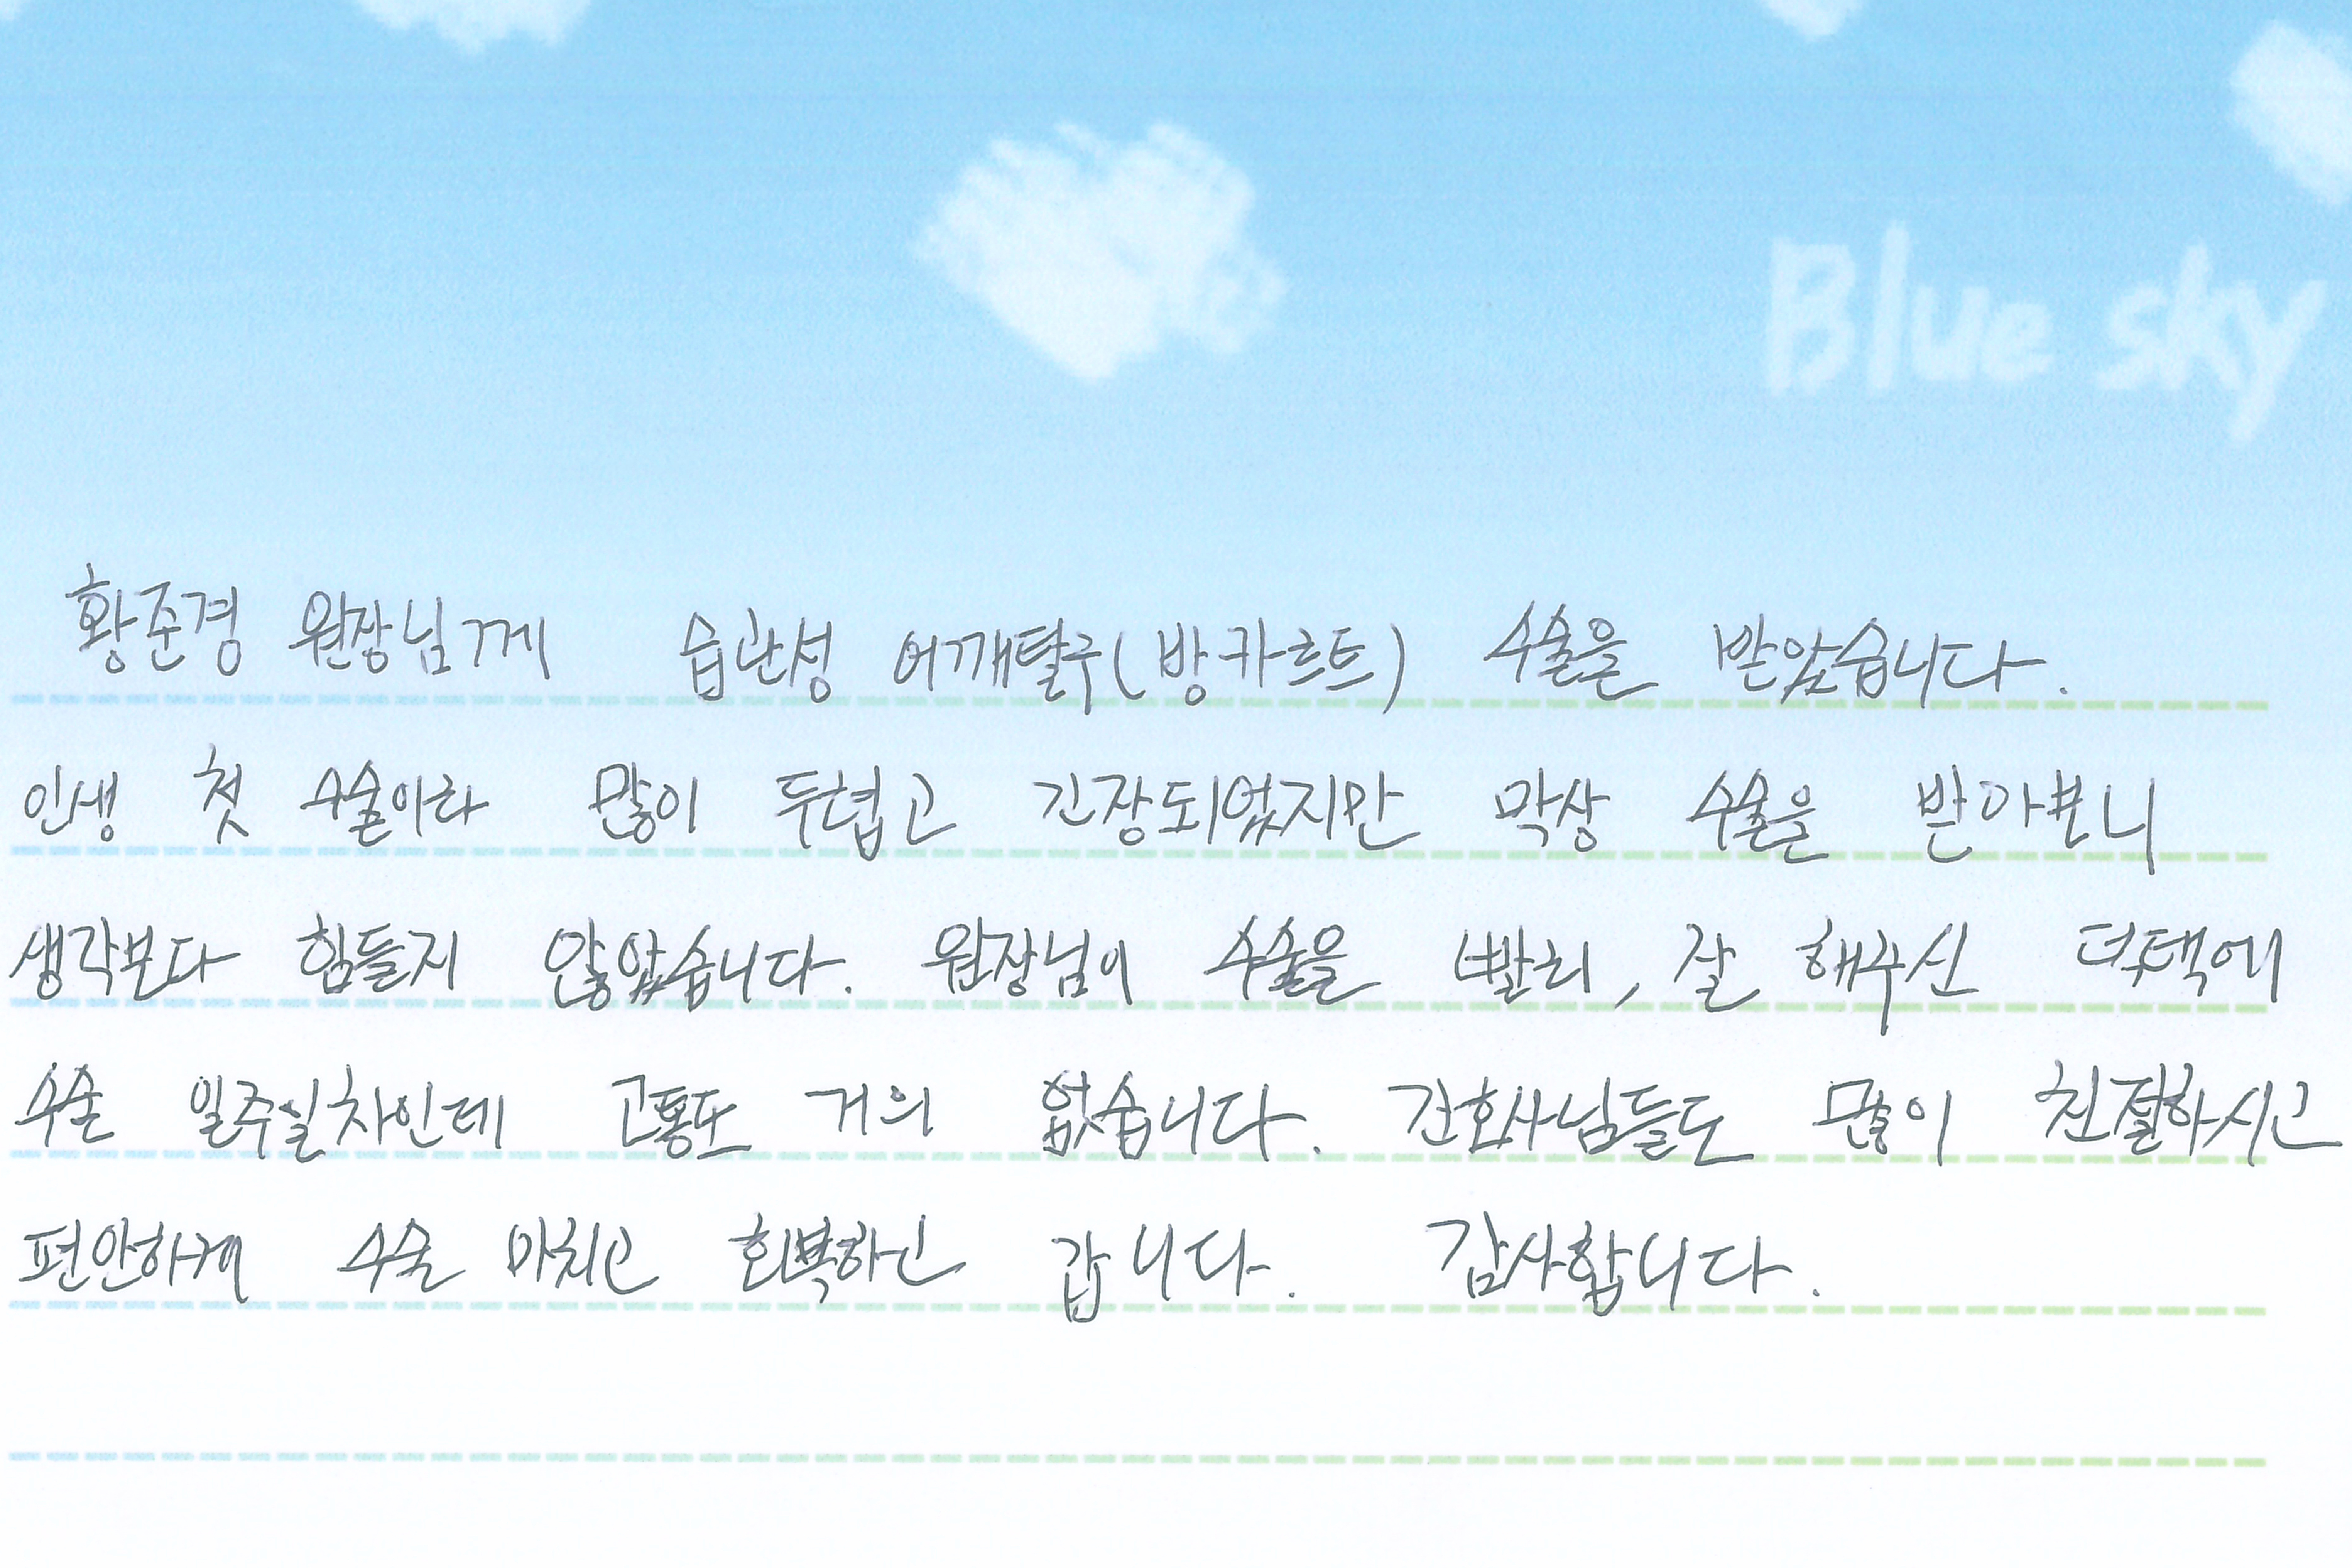 Blue sky
황준경 원장님께 습관성 어깨탈구(방카르트) 수술을 받았습니다.
인생 첫 수술이라 많이 두렵고 긴장되었지만 막상 수술을 받아보니
생각보다 힘들지 않았습니다. 원장님이 수술을 빨리, 잘 해주신 덕택에
수술 일주일차인데 고통도 거의 없습니다. 간호사님들도 많이 친절하시고
편안하게 수술 마치고 회복하고 갑니다. 감사합니다.